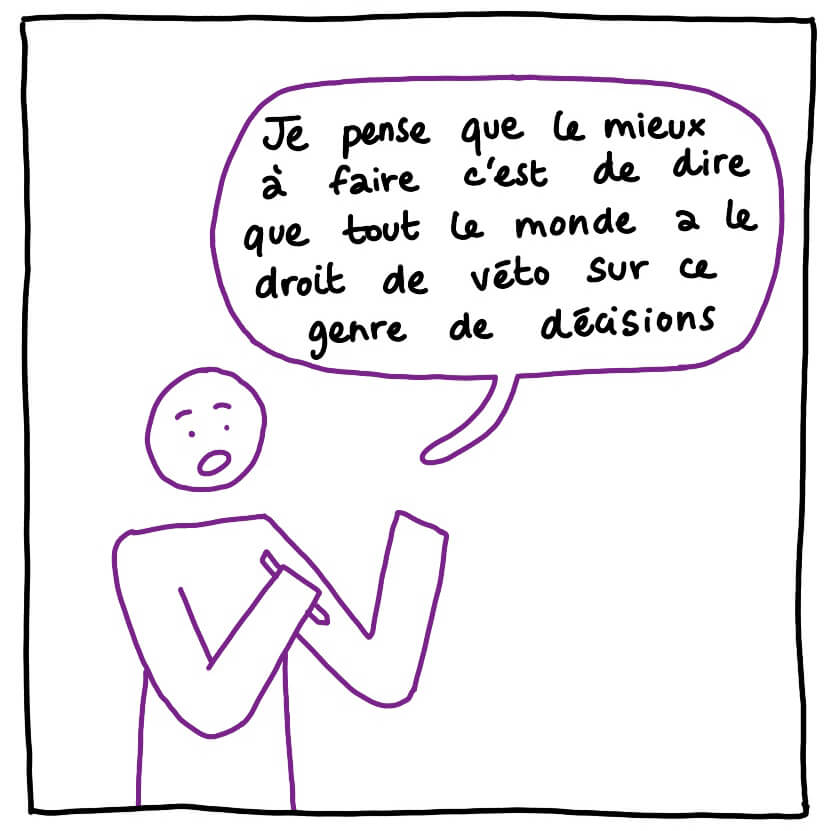 Je pense que le mieux
à faire c'est de dire
que tout le monde a le
droit de véto sur ce
genre de décisions